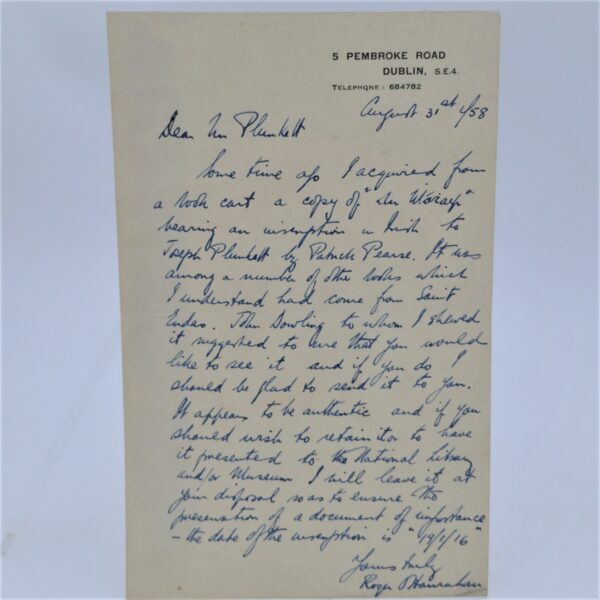 5 PEMBROKE ROAD
DUBLIN, S.E.4.
TELEPHONE: 684782
August 31st 1/58
Dear Mr Plunkett
Some time ago I acquired from
a book cart a copy of "An
bearing an inscription in Irish to
Joseph Plunkett by Patrick Pearse. It was
among a number of other books which
I understand had come from Saint
Endas. John Dowling to whom I shewed
it suggested to me that you would
like to see it and if you do I
should be glad to send it to you.
It appears to be authentic and if you
should wish to retain it or to have
it presented to the National Library
and/or Museum I will leave it at
your disposal so as to ensure the
preservation of a document of importance
– the date of the inscription is "19/1/16"
Yours truly
Roger O'Hanrahan